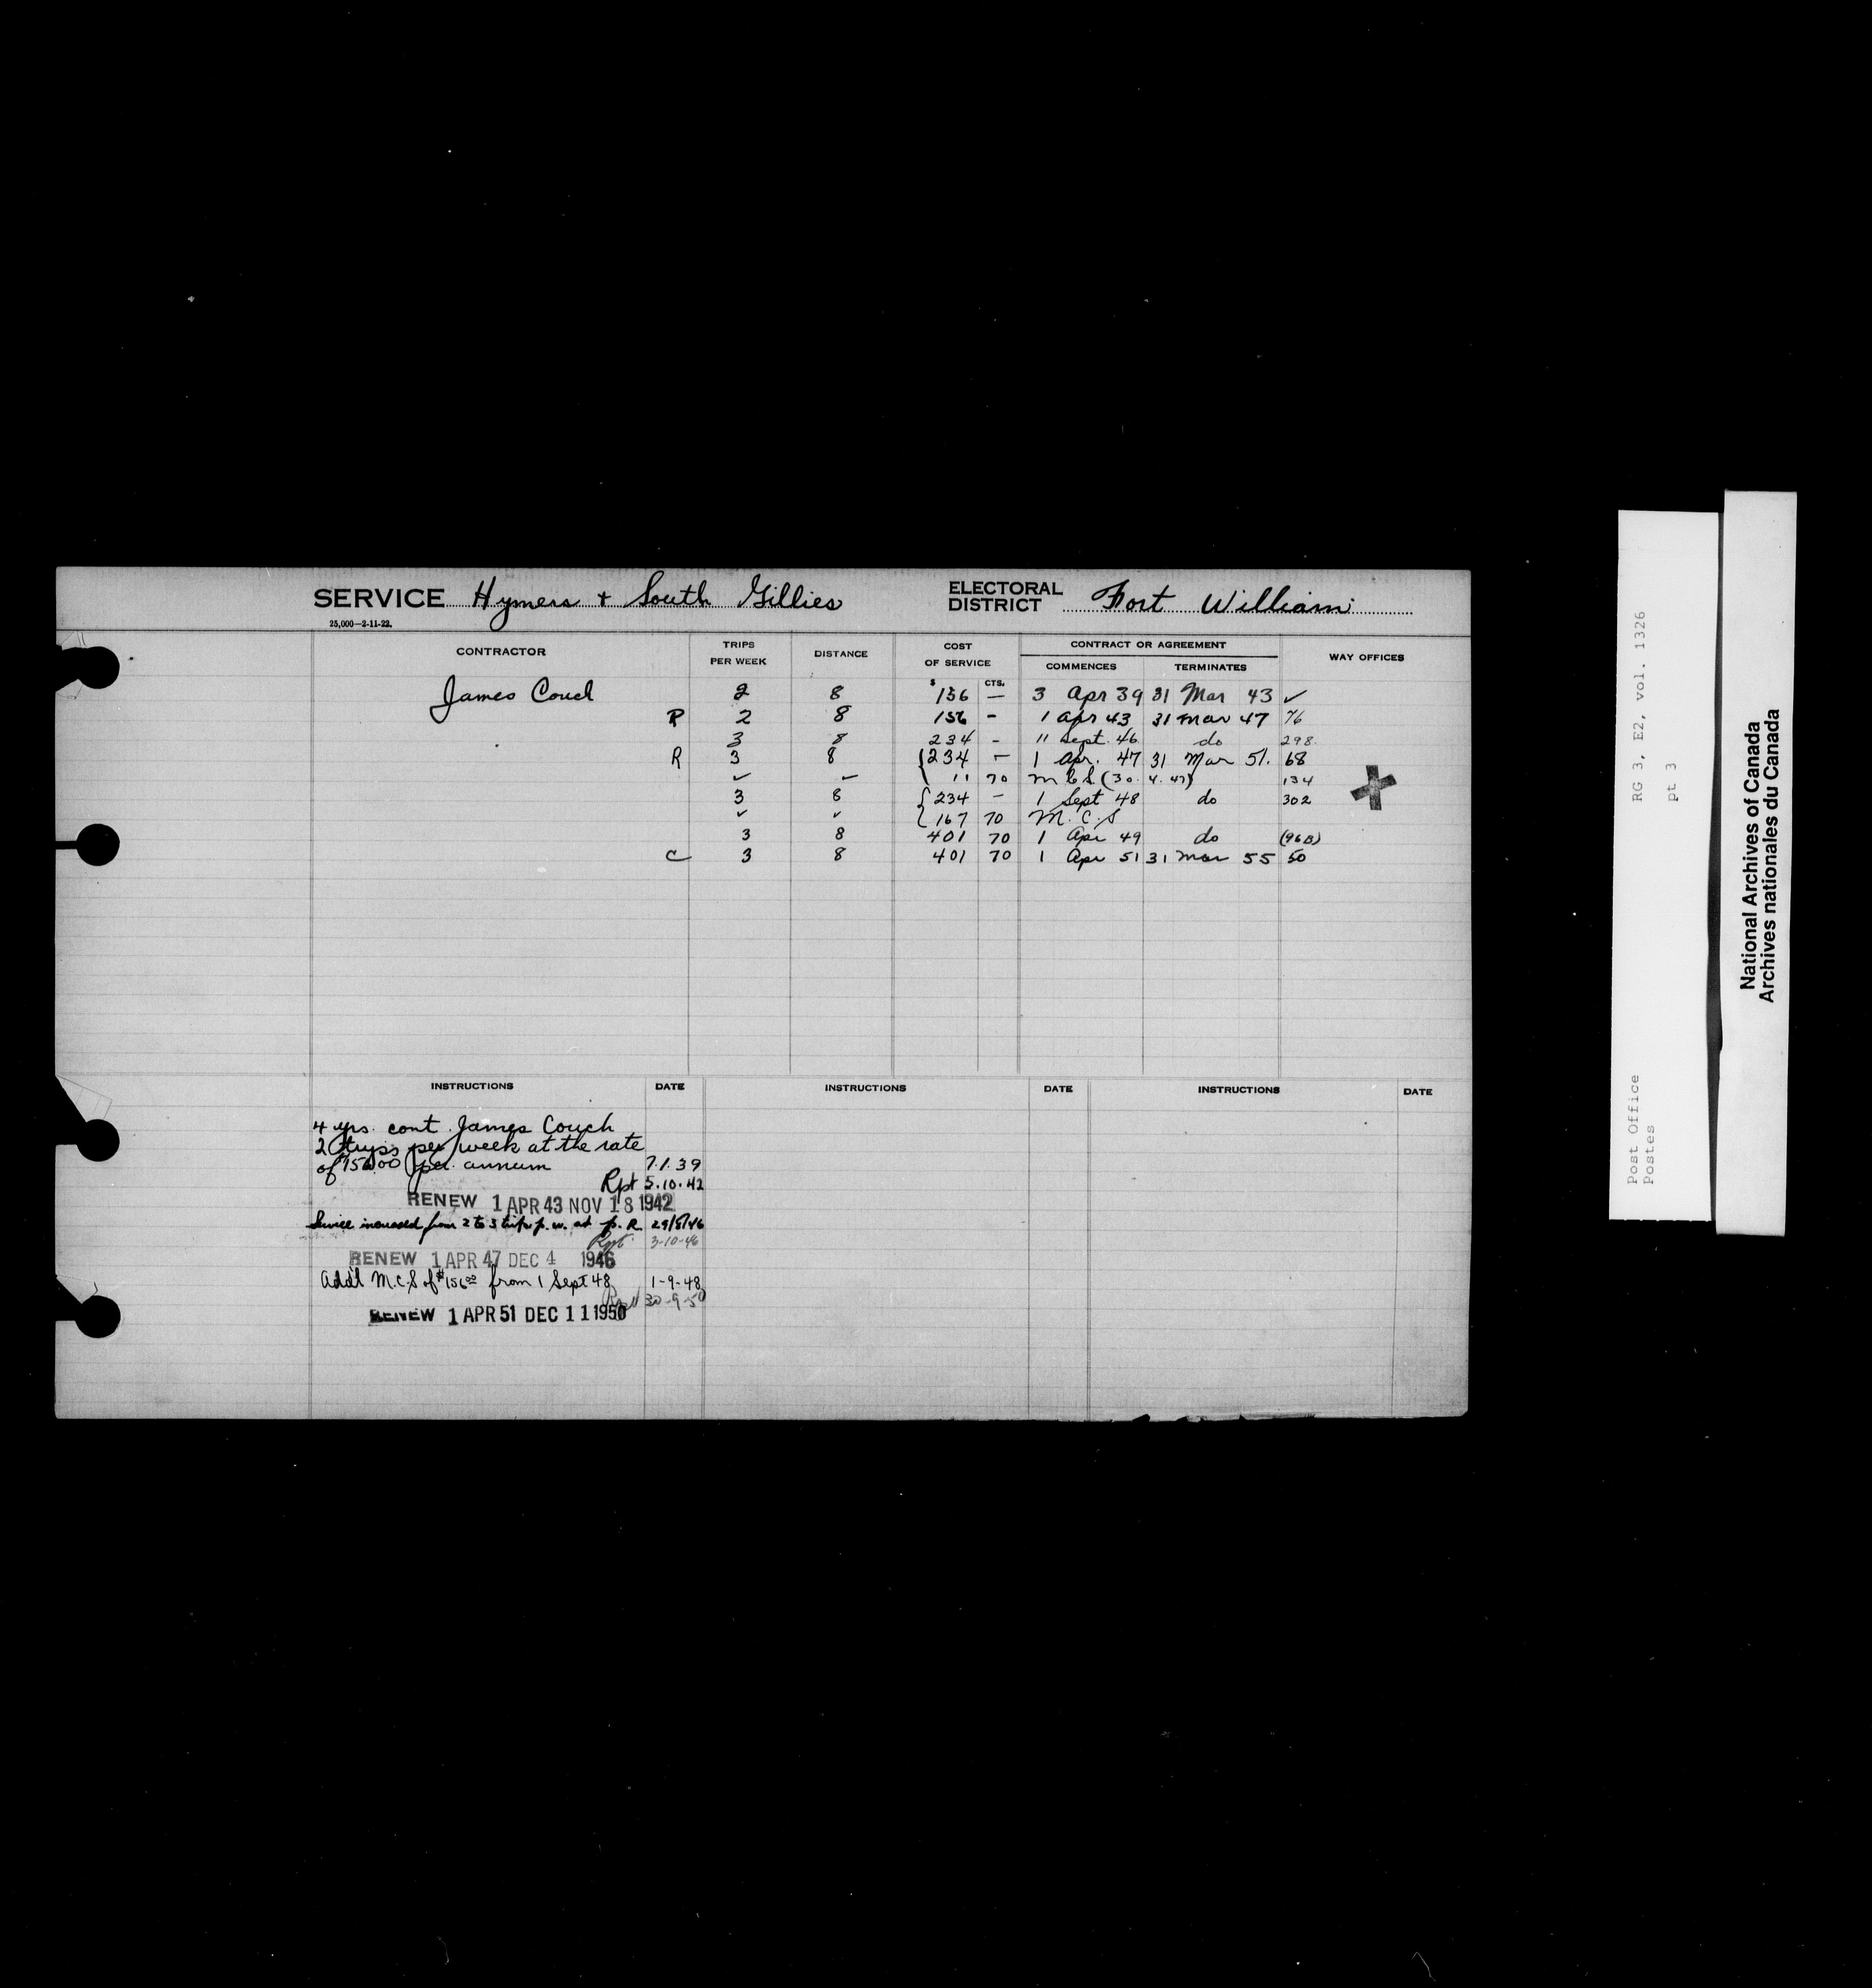 SERVICE Hymers + South Gillies ELECTORAL DISTRICT Fort William
25,000—2-11-22.
CONTRACTOR TRIPS PER WEEK DISTANCE COST OF SERVICE CONTRACT OR AGREEMENT COMMENCES TERMINATES WAY OFFICES
$ CTS.
James Couch 2 8 156 — 3 Apr 39 31 Mar 43 ✓
R 2 8 156 - 1 Apr 43 31 Mar 47 76
3 8 234 - 11 Sept. 46 do 298
R 3 8 {234 — 1 Apr. 47 31 Mar 51. 68
✓ ✓ 11 70 M.C.S (30. 4. 47) 134
3 8 {234 — 1 Sept 48 do 302
✓ ✓ 167 70 M.C.S
3 8 401 70 1 Apr 49 do (96B)
C 3 8 401 70 1 Apr 51 31 Mar 55 50
INSTRUCTIONS DATE INSTRUCTIONS DATE INSTRUCTIONS DATE
4 yrs. cont. James Couch
2 trips per week at the rate
of 156.00 per annum 7.1.39
Rpt 5.10.42
RENEW 1 APR 43 NOV 18 1942
Service increased from 2 to 3 trips p.w. at p. R. 29/8/46
Rpt. 3-10-46
RENEW 1 APR 47 DEC 4 1946
Add'l M.C.S of $156.00 from 1 Sept 48 1-9-48
30-9-50
RENEW 1 APR 51 DEC 11 1950
Post Office RG 3, E2, vol. 1326
Postes pt 3
National Archives of Canada
Archives nationales du Canada